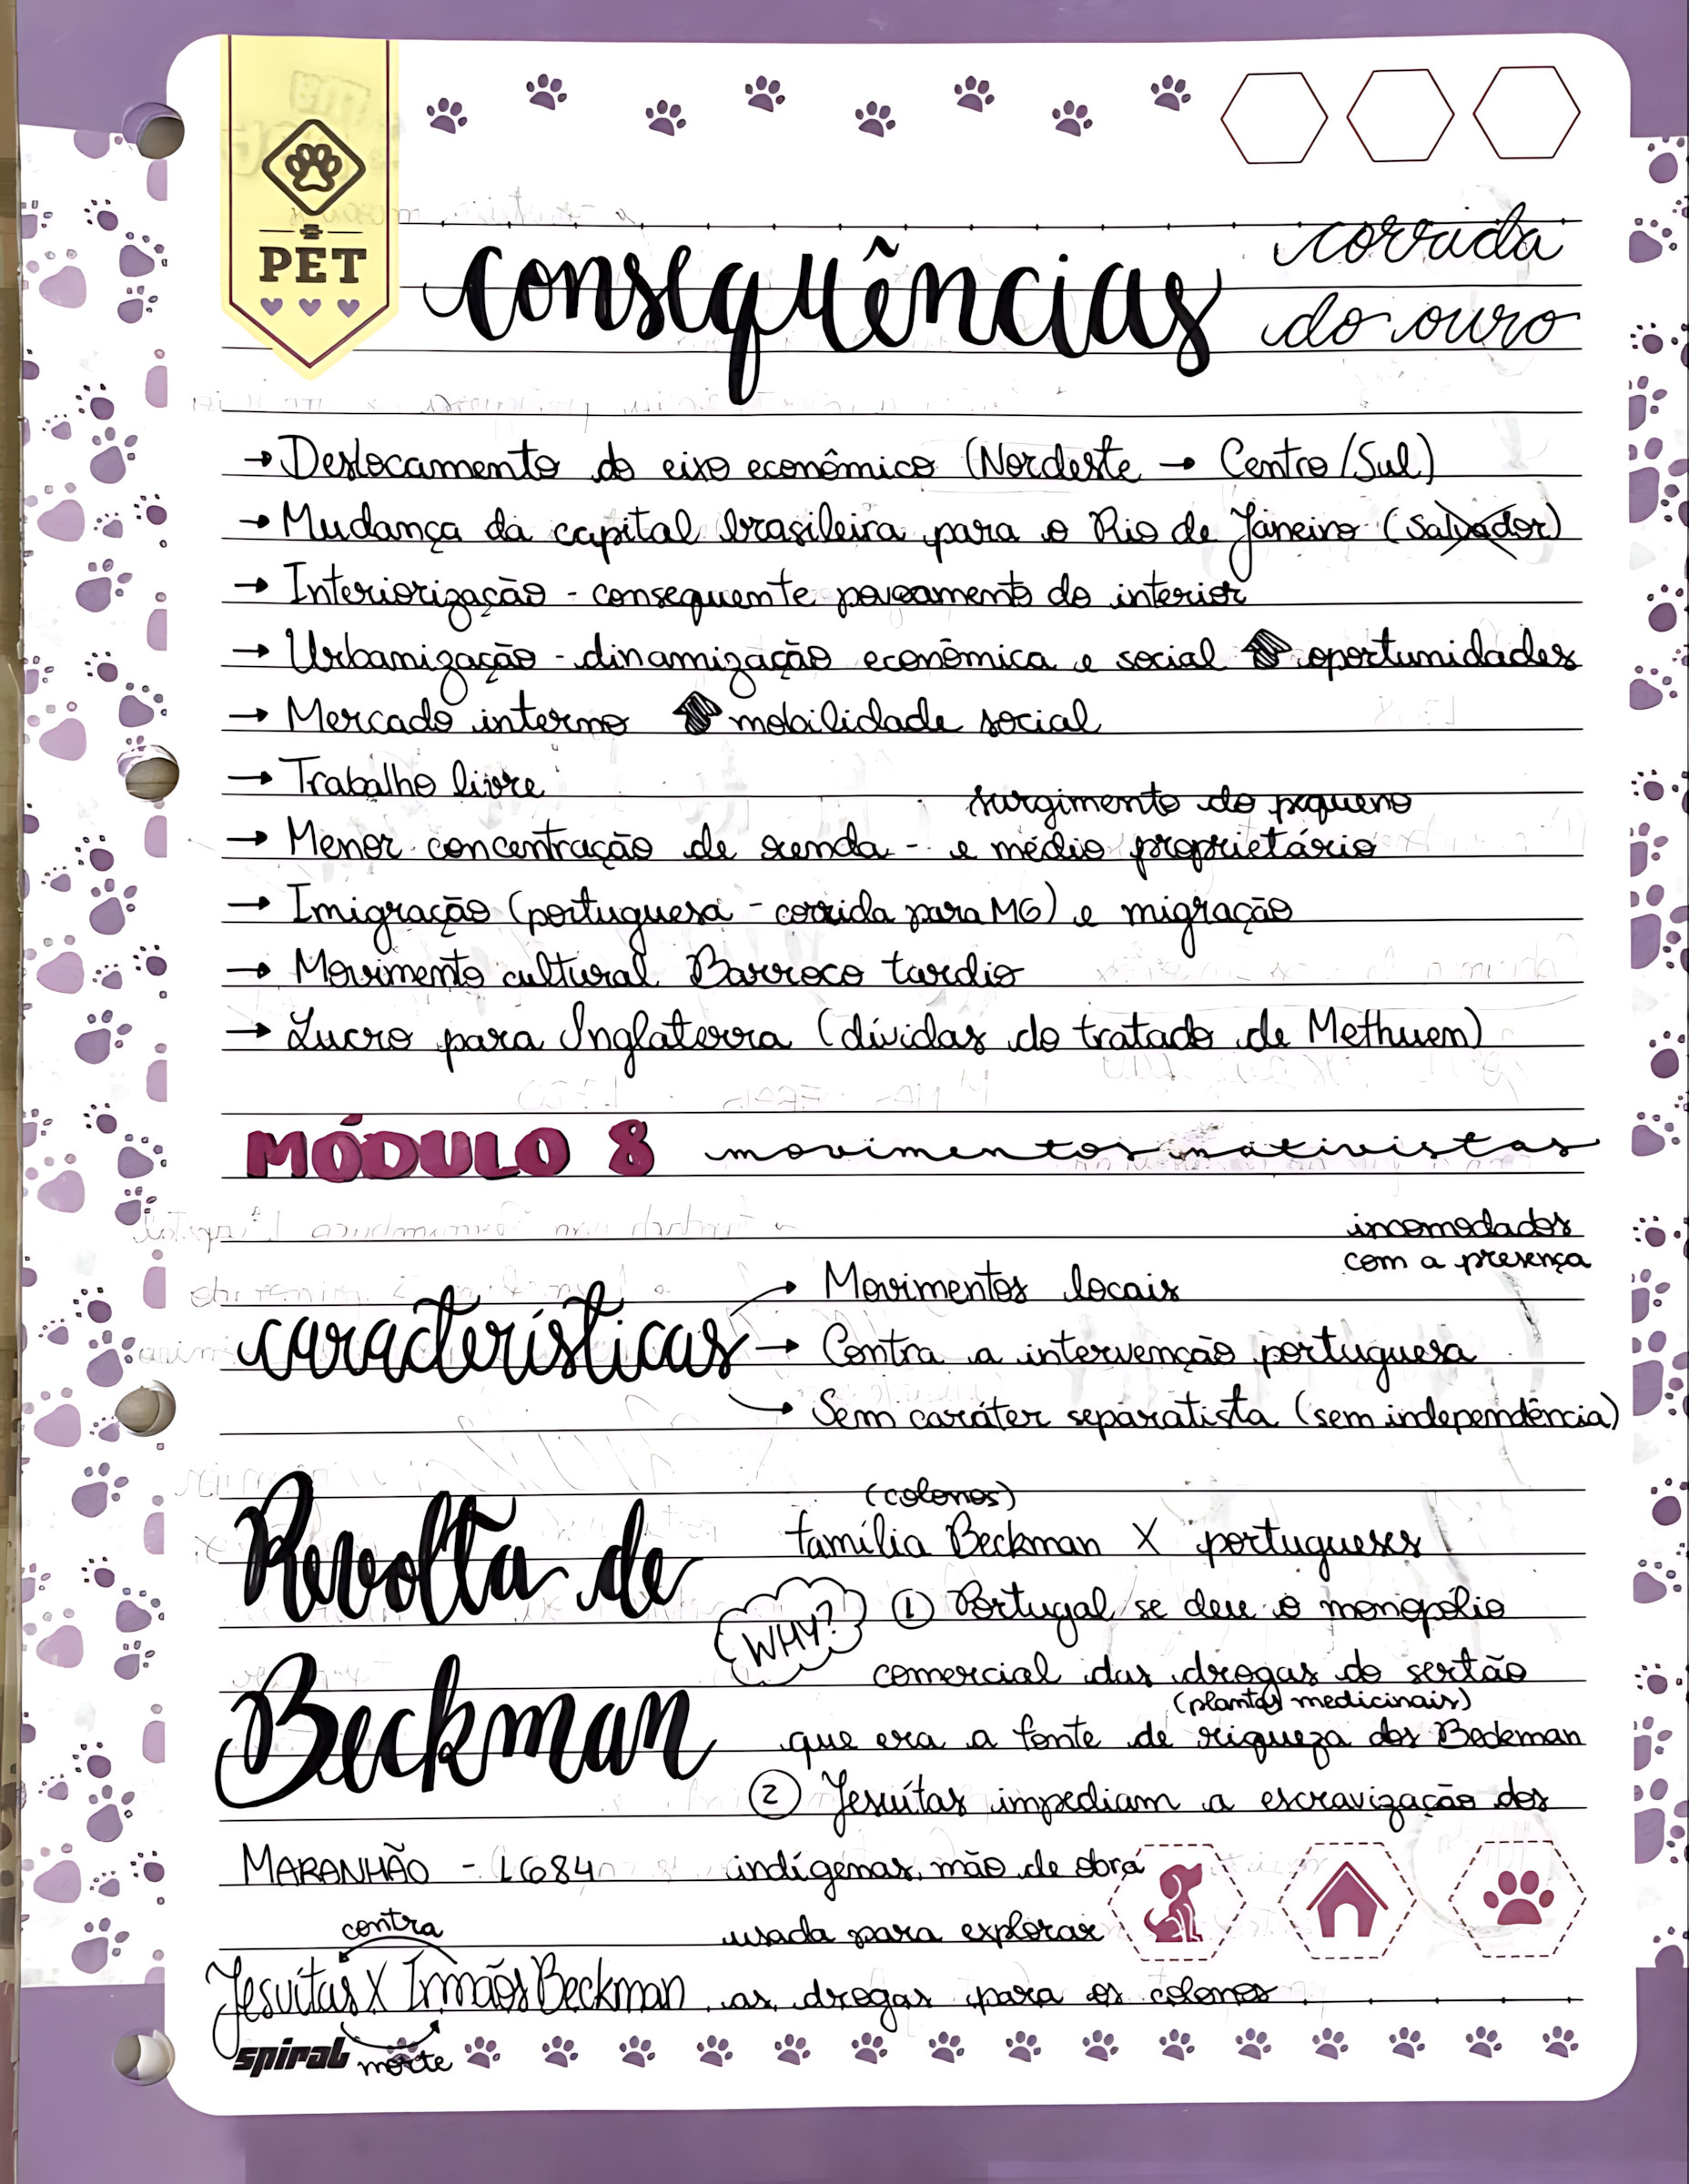 PET
consequências corrida
do ouro
→ Deslocamento do eixo econômico (Nordeste → Centro/Sul)
→ Mudança da capital brasileira para o Rio de Janeiro (Salvador)
→ Interiorização - consequente povoamento do interior
→ Urbanização - dinamização econômica e social ⬆ oportunidades
→ Mercado interno ⬆ mobilidade social
→ Trabalho livre
surgimento do pequeno
→ Menor concentração de renda - e médio proprietário
→ Imigração (portuguesa - corrida para MG) e migração
→ Movimento cultural Barroco tardio
→ Lucro para Inglaterra (dívidas do tratado de Methuen)
MÓDULO 8 movimentos nativistas
incomodados
com a presença
características → Movimentos locais
→ Contra a intervenção portuguesa
→ Sem caráter separatista (sem independência)
Revolta de
Beckman
MARANHÃO - 1684
contra
Jesuítas X Irmãos Beckman
morte
(colonos)
família Beckman X portugueses
WHY? ① Portugal se deu o monopólio
comercial das drogas do sertão
(plantas medicinais)
que era a fonte de riqueza dos Beckman
② Jesuítas impediam a escravização dos
indígenas, mão de obra
usada para explorar
as drogas para os colonos
spiral